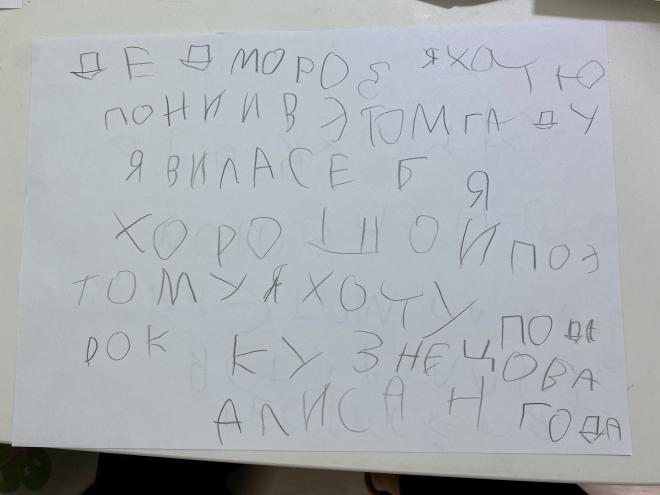 ДЕД МОРОЗ Я ХОЧЮ
ПОНИ И В ЭТОМ ГАДУ
Я ВИЛА СЕБЯ
ХОРОШОЙ ПОЭ
ТОМУ Я ХОЧУ ПОДА
РОК КУЗНЕЦОВА
АЛИСА Ч ГОДА